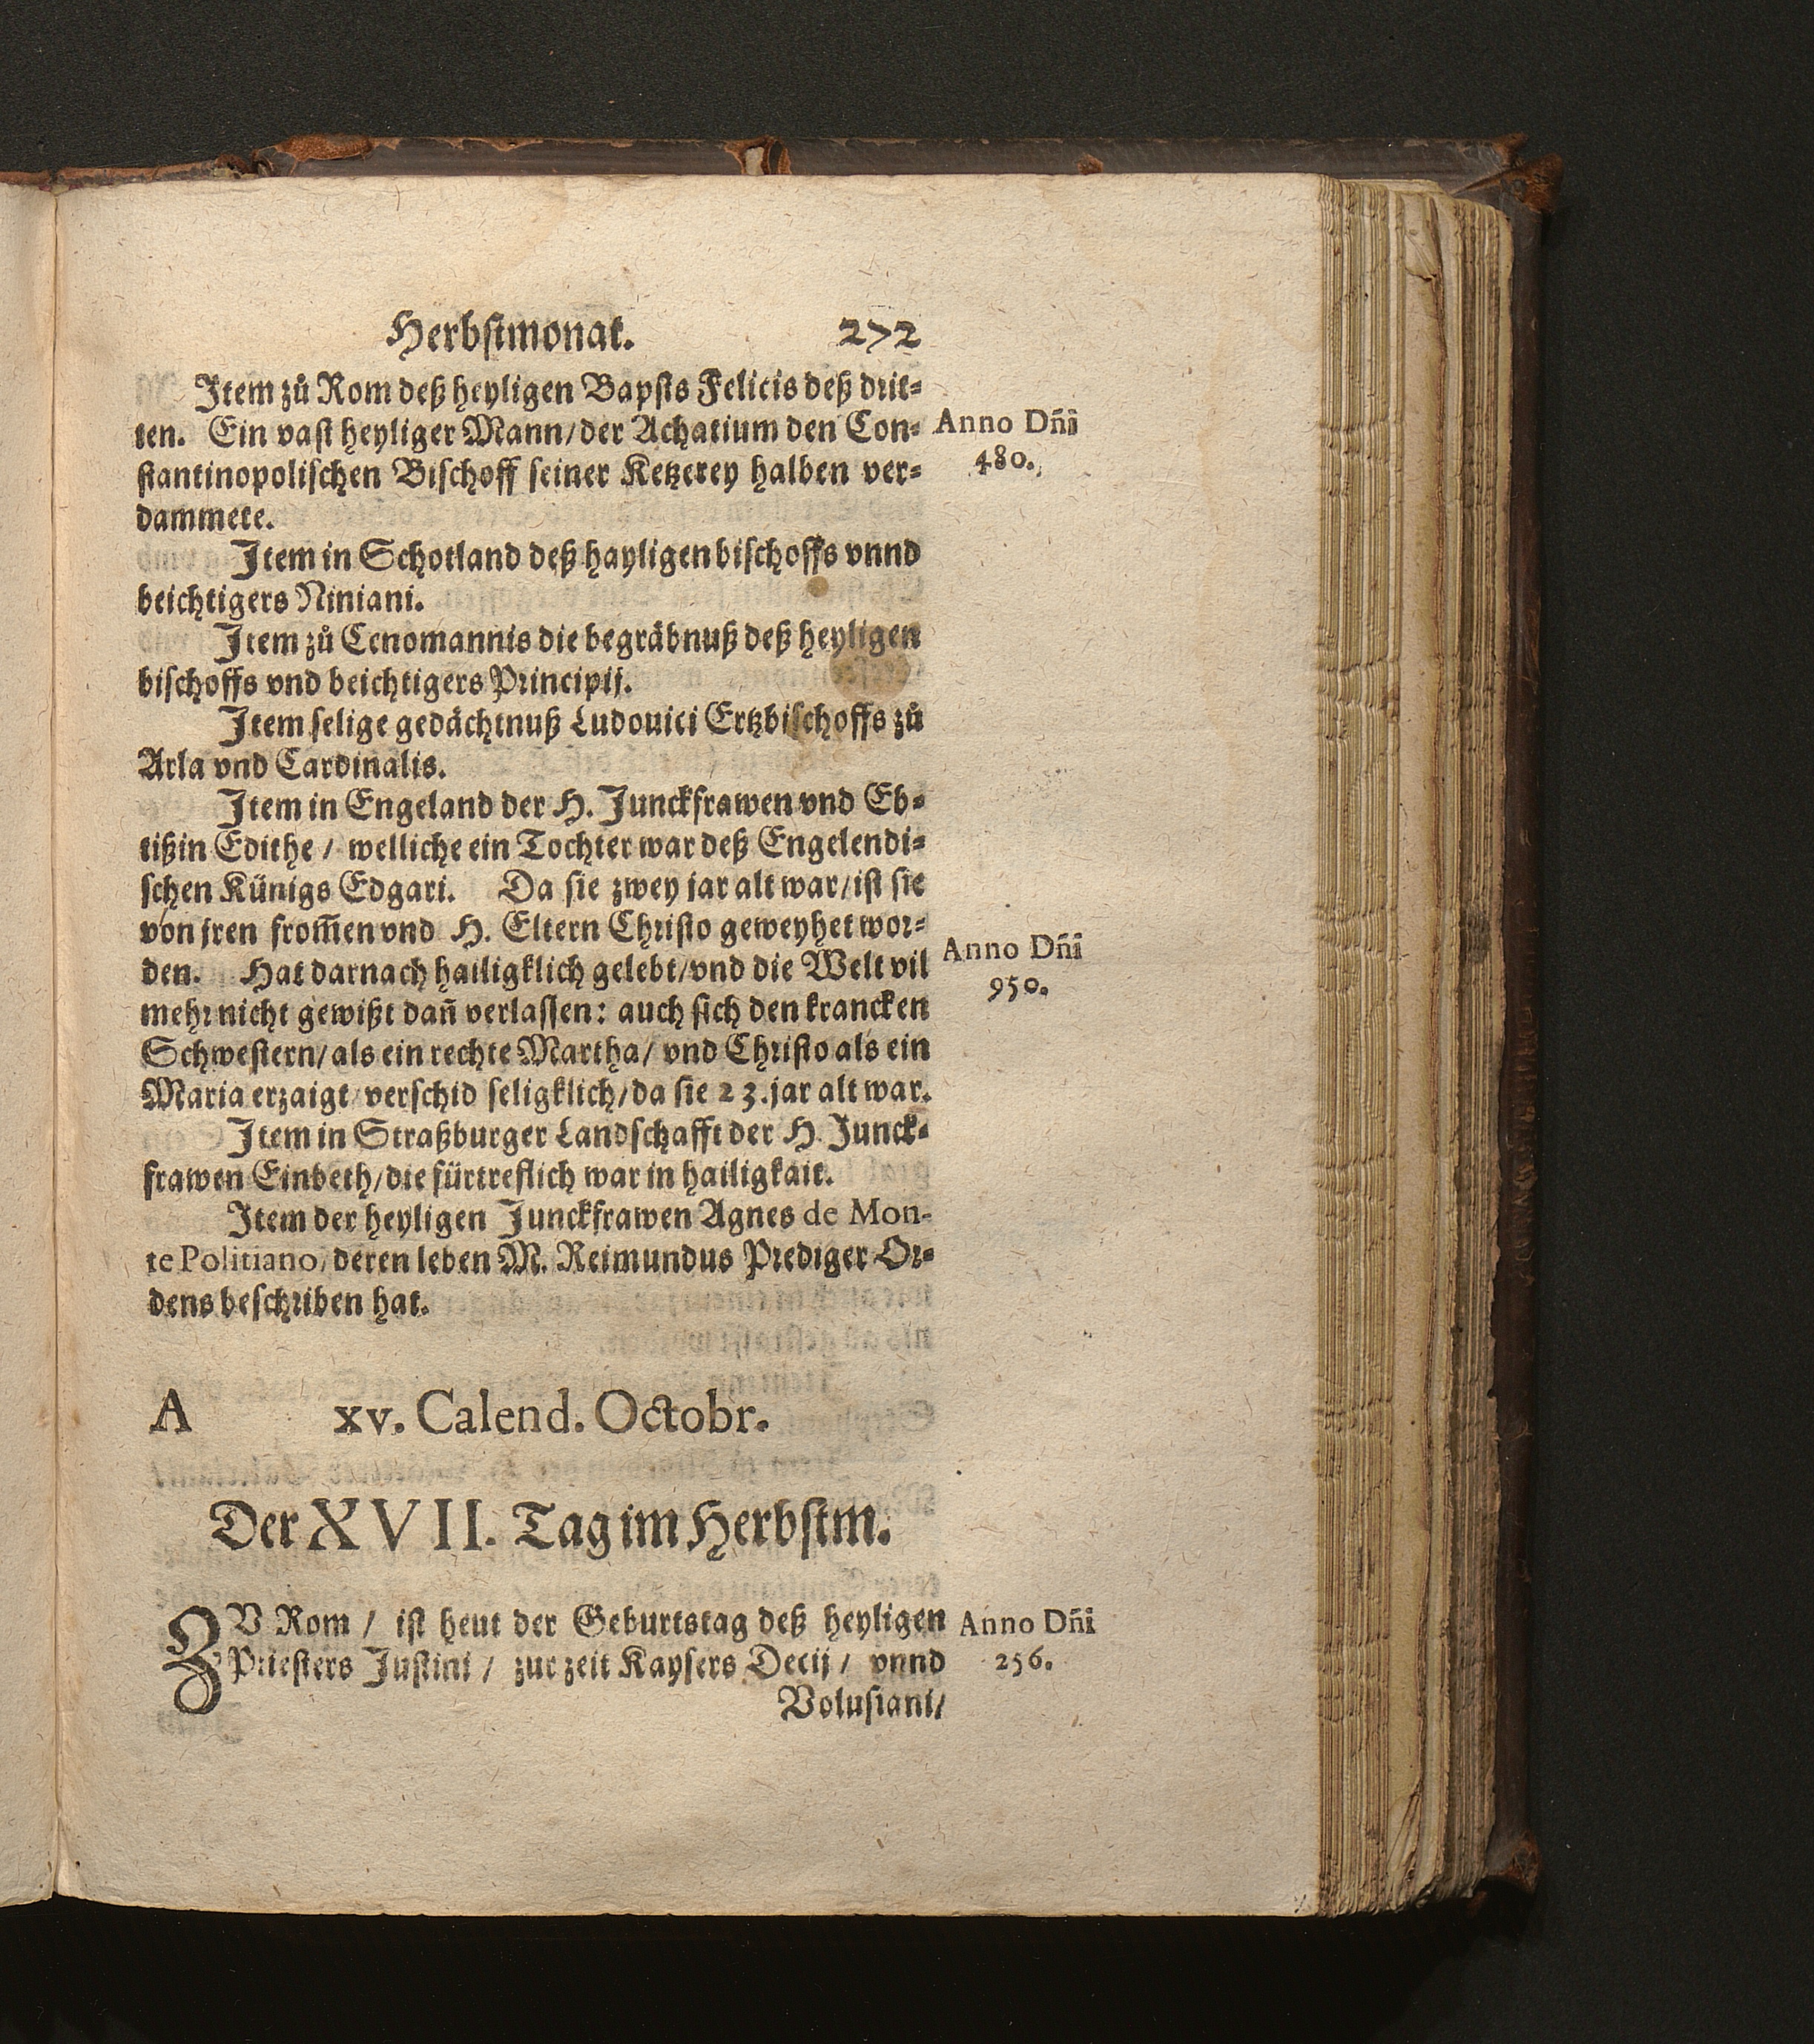 Herbstmonat. 272
Item zů Rom deß heyligen Bapsts Felicis deß drit-
ten. Ein vast heyliger Mann/der Achatium den Con-
Anno Dñi
stantinopolischen Bischoff seiner Ketzerey halben ver-
480.
dammete.
Item in Schotland deß hayligen bischoffs vnnd
beichtigers Niniani.
Item zů Cenomannis die begräbnuß deß heyligen
bischoffs vnd beichtigers Principij.
Item selige gedächtnuß Ludouici Ertzbischoffs zů
Arla vnd Cardinalis.
Item in Engeland der H. Junckfrawen vnd Eb-
tißin Edithe / welliche ein Tochter war deß Engelendi-
schen Künigs Edgari. Da sie zwey jar alt war/ist sie
von jren from̃en vnd H. Eltern Christo geweyhet wor-
den. Hat darnach hailigklich gelebt/vnd die Welt vil
Anno Dñi
mehr nicht gewißt dañ verlassen: auch sich den krancken
950.
Schwestern/als ein rechte Martha/ vnd Christo als ein
Maria erzaigt/verschid seligklich/da sie 23.jar alt war.
Item in Straßburger Landschafft der H. Junck-
frawen Einbeth/die fürtreflich war in hailigkait.
Item der heyligen Junckfrawen Agnes de Mon-
te Politiano/deren leben M. Reimundus Prediger Or-
dens beschriben hat.
A xv. Calend. Octobr.
Der XVII. Tag im Herbstm.
ZV Rom / ist heut der Geburtstag deß heyligen
Anno Dñi
Priesters Justini / zur zeit Kaysers Decij / vnnd
256.
Volusiani/